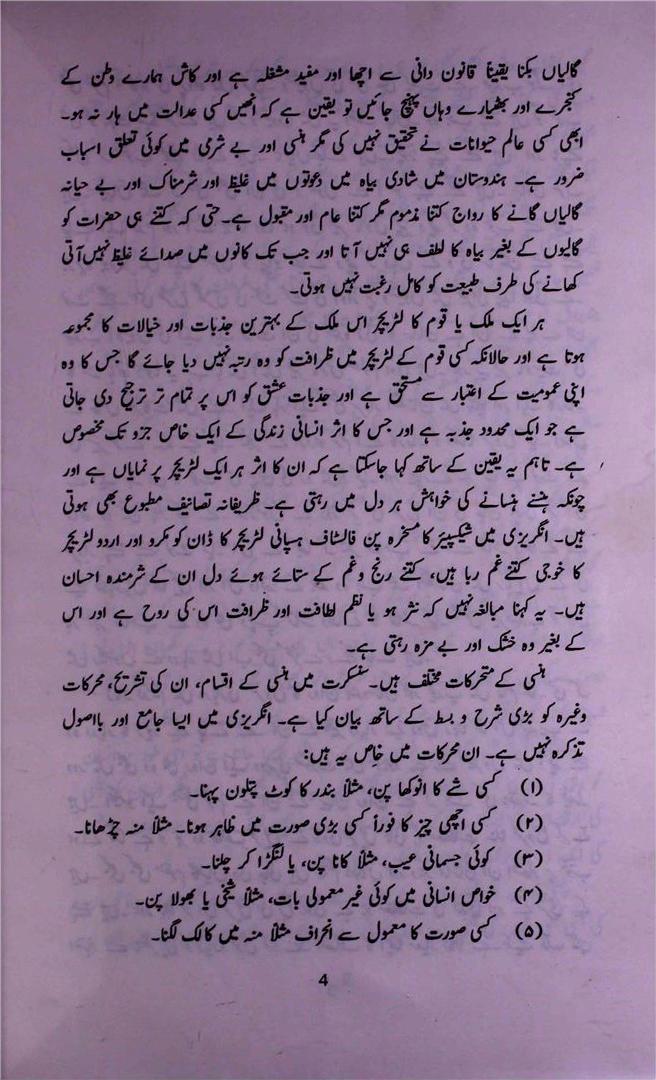 گالیاں بکنا یقیناً قانون دانی سے اچھا اور مفید مشغلہ ہے اور کاش ہمارے وطن کے
کنجڑے اور بھٹیارے وہاں پہنچ جائیں تو یقین ہے کہ انھیں کسی عدالت میں ہار نہ ہو۔
ابھی کسی عالم حیوانات نے تحقیق نہیں کی مگر ہنسی اور بے شرمی میں کوئی تعلق اسباب
ضرور ہے۔ ہندوستان میں شادی بیاہ میں دعوتوں میں غلیظ اور شرمناک اور بے حیانہ
گالیاں گانے کا رواج کتنا مذموم مگر کتنا عام اور مقبول ہے۔ حتی کہ کتنے ہی حضرات کو
گالیوں کے بغیر بیاہ کا لطف ہی نہیں آتا اور جب تک کانوں میں صدائے غلیظ نہیں آتی
کھانے کی طرف طبیعت کو کامل رغبت نہیں ہوتی۔
ہر ایک ملک یا قوم کا لٹریچر اس ملک کے بہترین جذبات اور خیالات کا مجموعہ
ہوتا ہے اور حالانکہ کسی قوم کے لٹریچر میں ظرافت کو وہ رتبہ نہیں دیا جائے گا جس کا وہ
اپنی عمومیت کے اعتبار سے مستحق ہے اور جذبات عشق کو اس پر تمام تر ترجیح دی جاتی
ہے جو ایک محدود جذبہ ہے اور جس کا اثر انسانی زندگی کے ایک خاص جزو تک مخصوص
ہے۔ تاہم یہ یقین کے ساتھ کہا جاسکتا ہے کہ ان کا اثر ہر ایک لٹریچر پر نمایاں ہے اور
چونکہ ہنسنے ہنسانے کی خواہش ہر دل میں رہتی ہے۔ ظریفانہ تصانیف مطبوع بھی ہوتی
ہیں۔ انگریزی میں شیکسپیئر کا مسخرہ پن فالسٹاف ہسپانی لٹریچر کا ڈان کومکرو اور اردو لٹریچر
کا خوجی کتنے غم ربا ہیں، کتنے رنج وغم کے ستائے ہوئے دل ان کے شرمندہ احسان
ہیں۔ یہ کہنا مبالغہ نہیں کہ نثر ہو یا نظم لطافت اور ظرافت اس کی روح ہے اور اس
کے بغیر وہ خشک اور بے مزہ رہتی ہے۔
ہنسی کے متحرکات مختلف ہیں۔ سنسکرت میں ہنسی کے اقسام، ان کی تشریح، محرکات
وغیرہ کو بڑی شرح و بسط کے ساتھ بیان کیا ہے۔ انگریزی میں ایسا جامع اور بااصول
تذکرہ نہیں ہے۔ ان محرکات میں خاص یہ ہیں:
(۱) کسی شے کا انوکھا پن، مثلاً بندر کا کوٹ پتلون پہنا۔
(۲) کسی اچھی چیز کا فوراً کسی بڑی صورت میں ظاہر ہونا۔ مثلاً منہ چڑھانا۔
(۳) کوئی جسمانی عیب، مثلاً کانا پن، یا لنگڑا کر چلنا۔
(۴) خواص انسانی میں کوئی غیر معمولی بات، مثلاً شیخی یا بھولا پن۔
(۵) کسی صورت کا معمول سے انحراف مثلاً منہ میں کالک لگنا۔
4